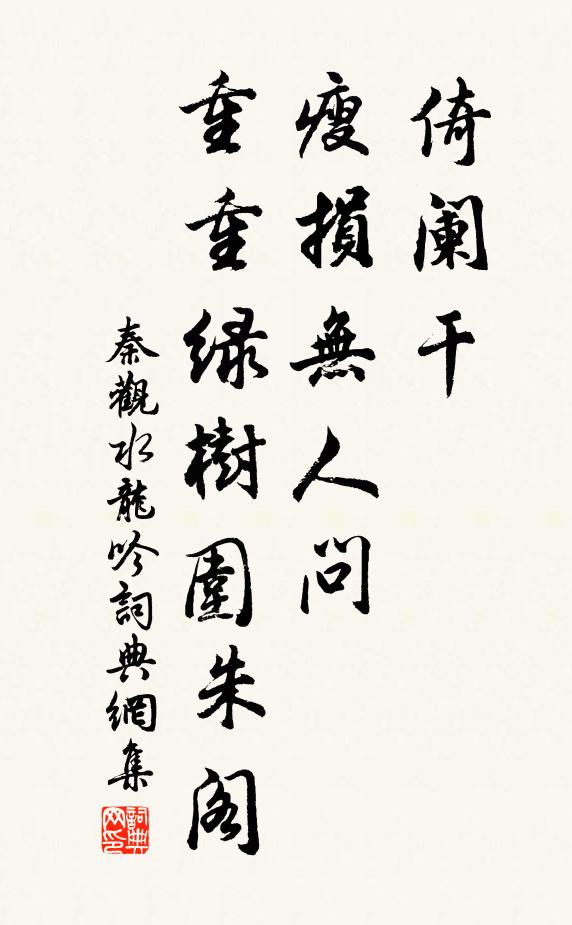 倚阑干
瘦損無人問
重重緑樹圍朱閣
秦觀水龍吟詞典網集
詞典网印